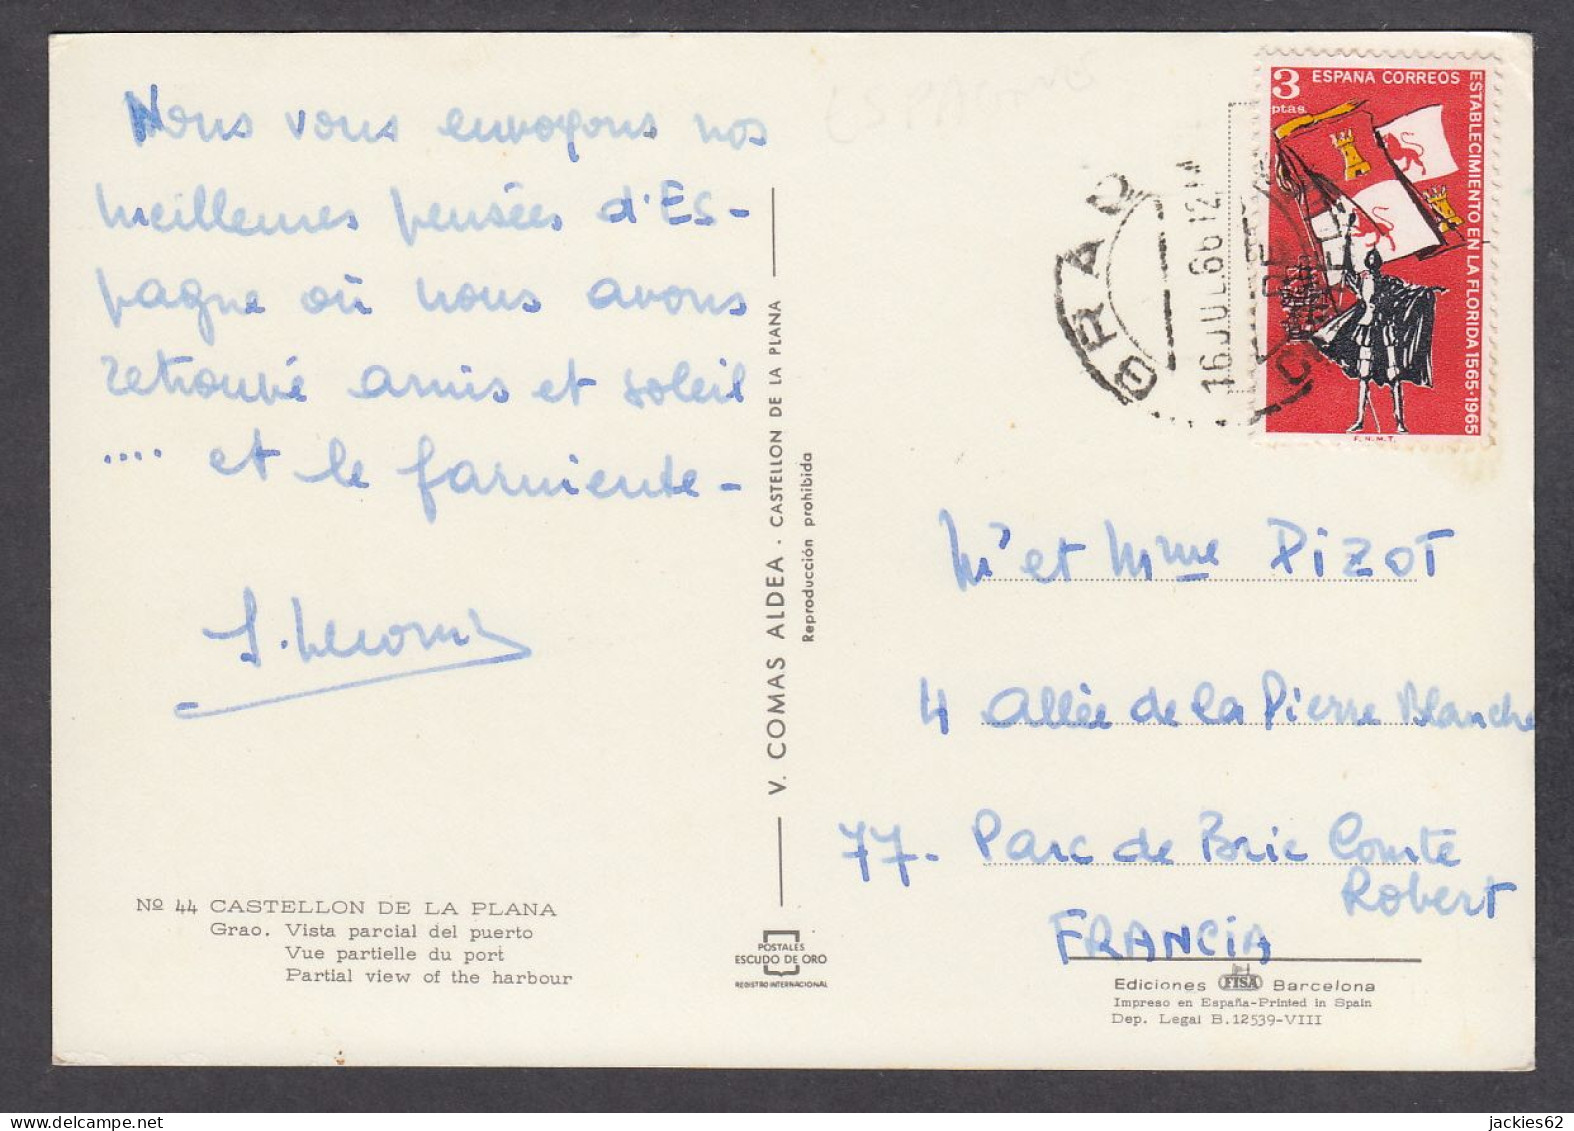 Nous vous envoyons nos
meilleures pensées d'ES-
pagne où nous avons
retrouvé amis et soleil
.... et le farniente -
Nº 44 CASTELLON DE LA PLANA
Grao. Vista parcial del puerto
Vue partielle du port
Partial view of the harbour
V. COMAS ALDEA - CASTELLON DE LA PLANA
Reproducción prohibida
POSTALES
ESCUDO DE ORO
REGISTRO INTERNACIONAL
ESPAGNE
3 ESPAÑA CORREOS
ptas.
ESTABLECIMIENTO EN LA FLORIDA 1565-1965
F.N.M.T.
16 JUL 66 12 M
Mr et Mme PIZOT
4 Allée de la Pierre Blanche
77 - Parc de Brie Comte
Robert
FRANCIA
Ediciones FISA Barcelona
Impreso en España-Printed in Spain
Dep. Legal B. 12539-VIII
jackies62